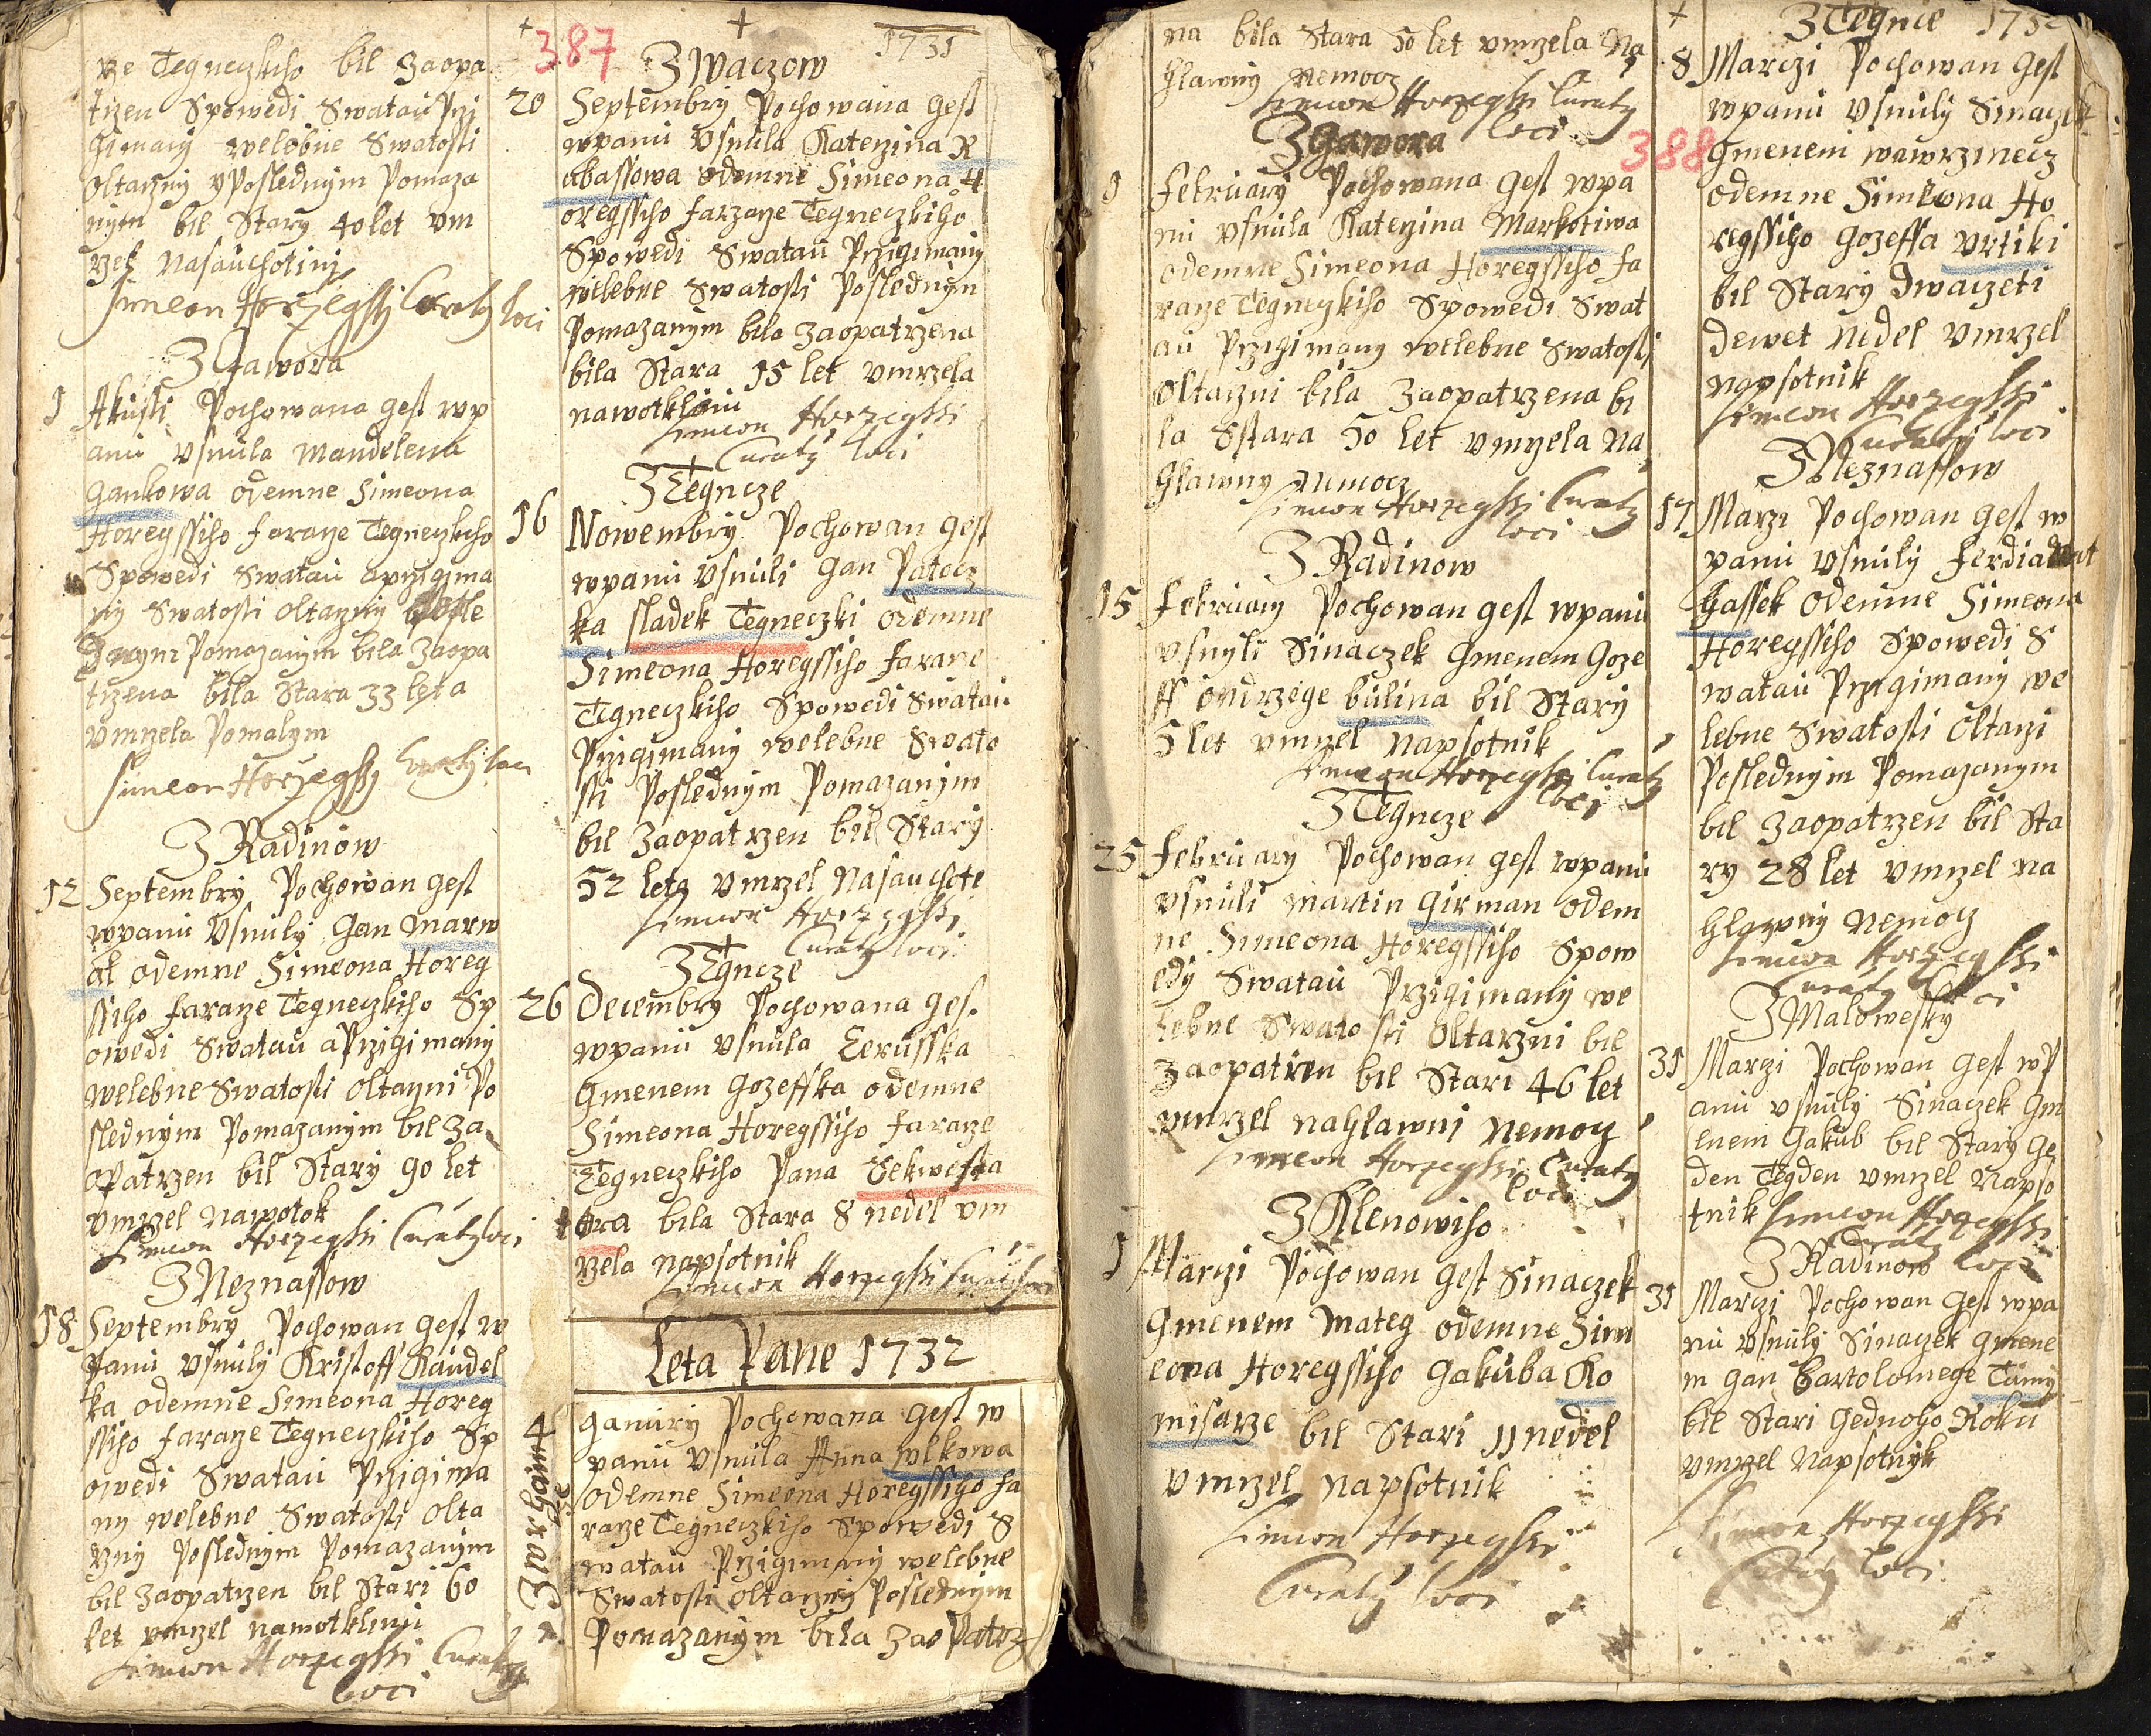 rze Tegneczkiho bil Zaopa
trzen Spowedi Swatau Przi
gimany welebne Swatosti
oltarzny y Poslednym Pomaza
nym bil Stary 40 let vm
rzel Nasauchotini
Simeon Horzegssi Curatg loci
Z Gawora
1 Akusti Pochowana gest wp
anu vsnula Mandelena
Gankowa odemne Simeona
Horegssiho faraze Tegneczkiho
Spowedi Swatau a przigima
ny Swatosti oltarzny Posle
dnym Pomazanym bila Zaopa
trzena bila Stara 33 leta
vmrzela Pomalym
Simeon Horzegssy Curatg loci
Z Radinow
12 Septembry Pochowan gest
wpanu Vsnuly Gan Marw
al odemne Simeona Horeg
ssiho faraze Tegneczkiho Sp
owedi Swatau a Przigimany
welebne Swatosti oltarzni Po
slednym Pomazanym bil Za
opatrzen bil Stary 90 let
vmrzel nawotok
Simeon Horzegssi Curatg loci
Z Neznassow
18 Septembry Pochowan gest w
Panu vsnuly Kristoff Kaudel
ka odemne Simeona Horeg
ssiho faraze Tegneczkiho Sp
owedi Swatau Przigima
ny welebne Swatosti olta
rzny Poslednym Pomazanym
bil Zaopatrzen bil Stari 60
let vmrzel nawotklinu
Simeon Horzegssi Curatg
loci
387
1731
Z Waczow
20 Septembry Pochowana gest
wpanu Vsnula Katerzina R
abassowa odemne Simeona H
oregssiho farzaze Tegneczkiho
Spowedi Swatau Przigimany
welebne Swatosti Poslednym
Pomazanym bila Zaopatrzena
bila Stara 15 let vmrzela
nawotklinu
Simeon Horzegssi
Curatg loci
Z Tegncze
16 Nowembry Pochowan gest
wpanu vsnuli Gan Patocz
ka sladek Tegneczki odemne
Simeona Horegssiho faraze
Tegneczkiho Spowedi Swatau
Przigimany welebne Swato
sti Poslednym Pomazanym
bil Zaopatrzen bil Stary
52 leta vmrzel Nasauchote
Simeon Horzegssi
Curatg loci
Z Tegncze
26 Decembry Pochowana ges.
wpanu vsnula Cerusska
Gmenem Gozeffka odemne
Simeona Horegssiho faraze
Tegneczkiho Pana Sekwest
ora bila Stara 8 nedel vm
rzela napsotnik
Simeon Horzegssi Curatg loci
Leta Pane 1732
Z Warhanize
4 Ganury Pochowana gest w
panu Vsnula Anna wlkowa
odemne Simeona Horegssiho fa
raze Tegneczkiho Spowedi S
watau Przigimany welebne
Swatosti Oltarzny Poslednym
Pomazanym bila Zao Patrz
na bila Stara 50 let vmrzela Na
hlawny Nemocz
Simeon Horzegssi Curatg
loci
Z Gawora
9 February Pochowana gest wpa
nu vsnula Katerzina Markotiwa
odemne Simeona Horegssiho fa
raze Tegneczkiho Spowedi Swat
au Przigimany welebne Swatosti
Oltarzni bila Zaopatrzena bi
la Sstara 50 let vmrzela Na
hlawny Nemocz
Simeon Horzegssi Curatg
loci
Z Radinow
15 February Pochowan gest wpanu
vsnyli Sinaczek Gmenem Goze
ff Ondrzege bulina bil Stary
5 let vmrzel Napsotnik
Simeon Horzegssi Curatg
loci
Z Tegncze
25 February Pochowan gest wpanu
vsnuli Martin Girman odem
ne Simeona Horegssiho Spow
edy Swatau Przigimany we
lebne Swatosti Oltarzni bil
Zaopatrzen bil Stari 46 let
vmrzel nahlawni Nemocz
Simeon Horzegssi Curatg
loci
Z Klenowiho
1 Marczi Pochowan gest Sinaczek
Gmenem Mateg odemne Sim
eona Horegssiho Gakuba Ko
misarze bil Stari 11 nedel
vmrzel napsotnik
Simeon Horzegssi
Curatg loci
Z Tegnie 1732
388
8 Marczi Pochowan Gest
wpanu vsnuly Sinaczek
Gmenem wawrzinecz
odemne Simeona Ho
regssiho Gozeffa Vrtiki
bil Stary Dwaczeti
dewet nedel vmrzel
napsotnik
Simeon Horzegssi
Curatg loci
Z Neznassow
17 Marzi Pochowan gest w
panu vsnuly ferdianant
Hassek odemne Simeona
Horegssiho Spowedi S
watau Przigimany we
lebne Swatosti Oltarzi
Poslednym Pomazanym
bil Zaopatrzen bil Sta
ry 28 let vmrzel na
hlawny Nemocz
Simeon Horzegssi
Curatg loci
Z Malowesky
31 Marzi Pochowan gest wP
anu vsnuly Sinaczek Gm
enem Gakub bil Stary Ge
den Tegden vmrzel Napso
tnik Simeon Horzegssi
Curatg loci
Z Radinow
31 Marczi Pochowan gest wpa
nu vsnuly Sinaczek Gmene
m Gan Bartolomege Tumy
bil Stari Gednoho Roku
vmrzel Napsotnyk
Simeon Horzegssi
Curatg loci